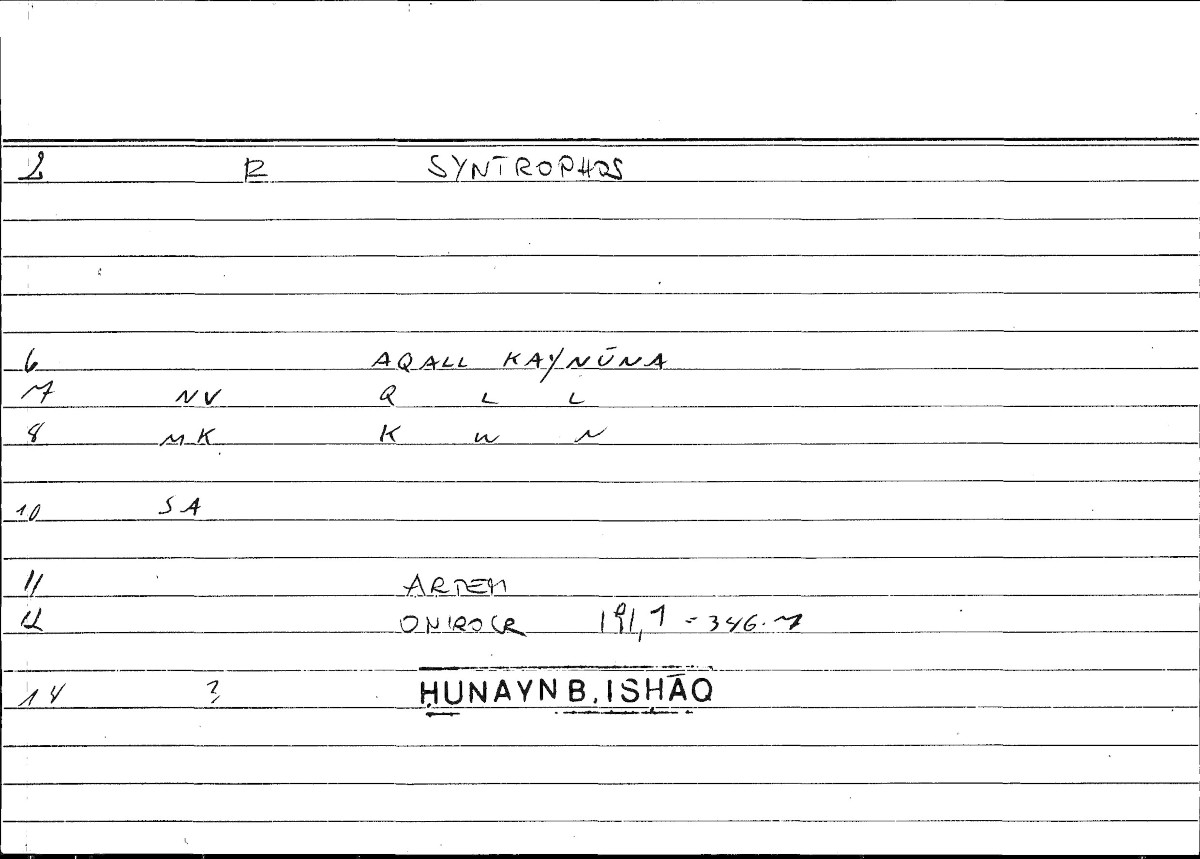 2 R SYNTROPHOS
6 AQALL KAYNŪNA
7 NV Q L L
8 MK K W N
10 SA
11 ARTEM
12 ONIROCR 191,1 = 346.7
14 ? ḤUNAYN B. ISḤĀQ